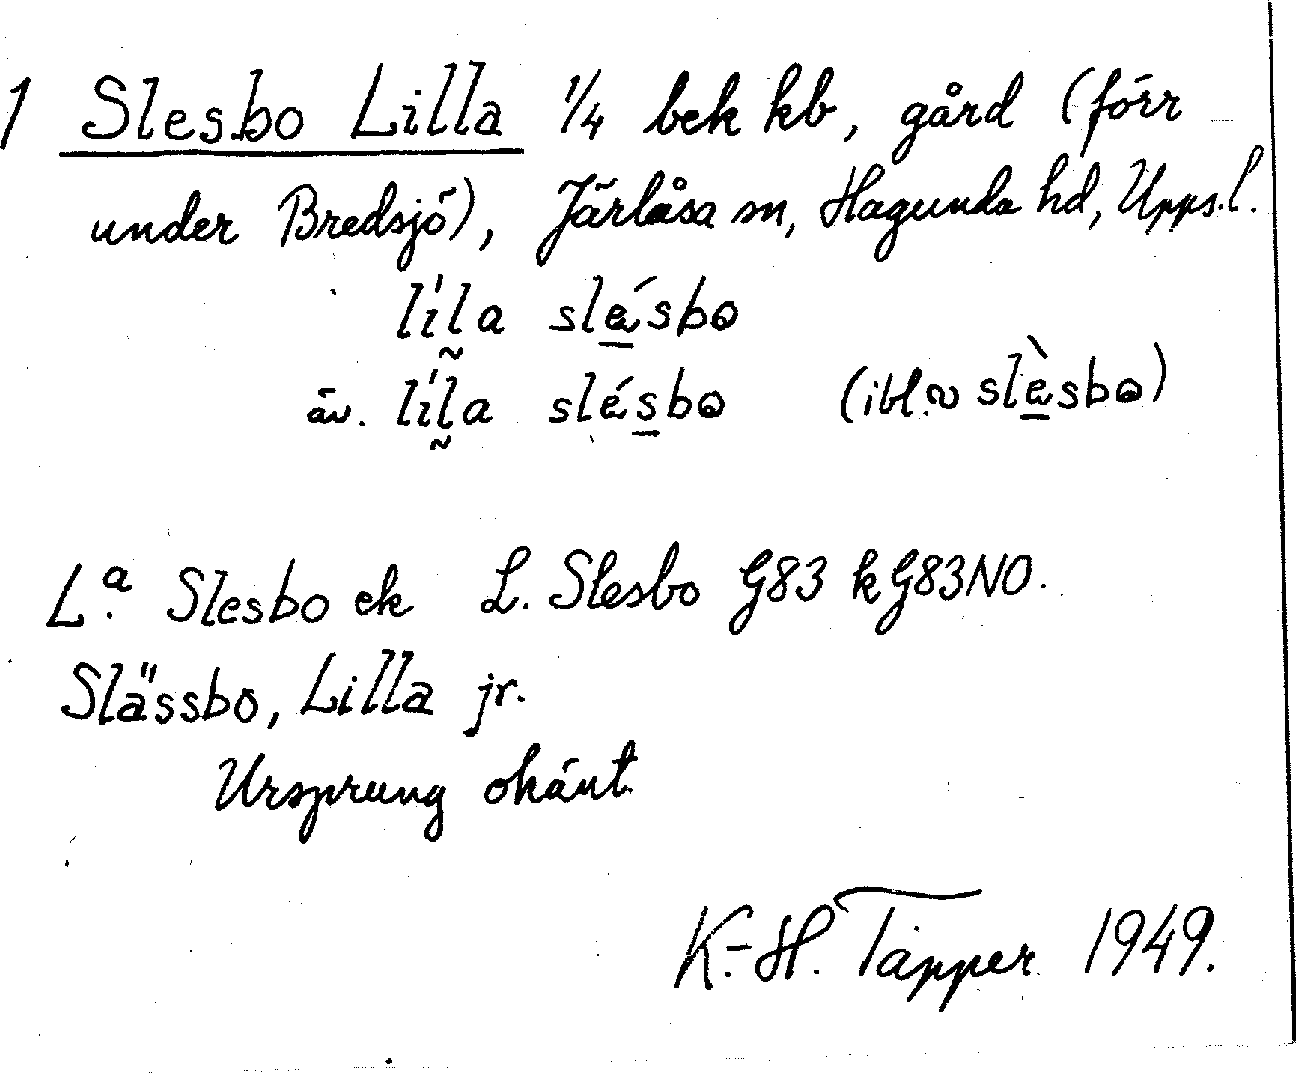 1 Slesbo Lilla 1/4 bek kb, gård (förr
under Bredsjö), Järlåsa sn, Hagunda hd, Upps.l.
líl̰a slé̲sbo
äv. líl̰a slés̲bo (ibl. ~ slè̲sbo)
L.ª Slesbo ek L. Slesbo G83 kG83NO.
Slässbo, Lilla jr.
Ursprung okänt.
K.-H. Tapper 1949.